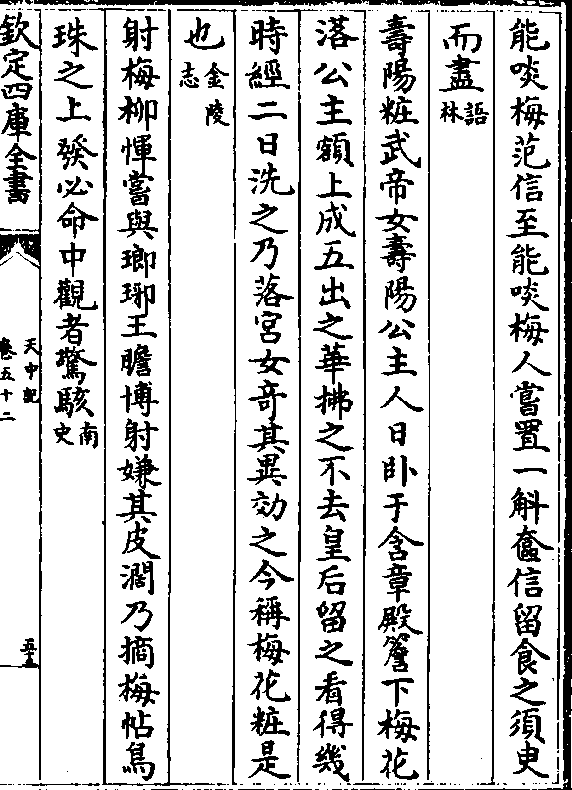 能啖梅范信至能啖梅人嘗置一斛奩信留食之須臾
而盡語林
壽陽粧武帝女壽陽公主人日卧于含章殿簷下梅花
落公主額上成五出之華拂之不去皇后留之看得幾
時經二日洗之乃落宮女竒其異効之今稱梅花粧是
也金陵志
射梅柳惲嘗與瑯琊王瞻博射嫌其皮濶乃摘梅帖鳥
珠之上發必命中觀者驚駭南史
欽定四庫全書
天中記
卷五十二